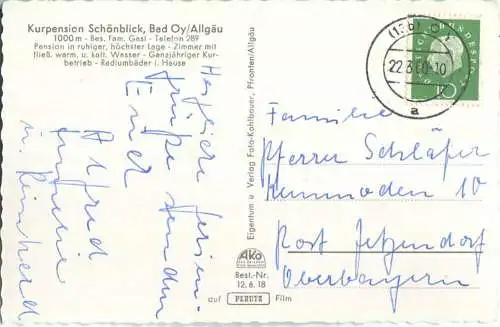 Kurpension Schönblick, Bad Oy/Allgäu
1000 m - Bes. Fam. Gasl - Telefon 289
Pension in ruhiger, höchster Lage - Zimmer mit
fließ. warm. u. kalt. Wasser - Ganzjähriger Kur-
betrieb - Radiumbäder i. Hause
Herzliche Ferien-
grüße senden
Euch
Alfred
u. Reinhard
Eigentum u. Verlag Foto-Kohlbauer, Pfronten/Allgäu
AKO
Best.-Nr.
12. 6. 18
auf PERUTZ Film
22.3.60-10
a
10
Familie
Pfarrer Schläfer
Kemmoden 10
Post Jetzendorf
Oberbayern